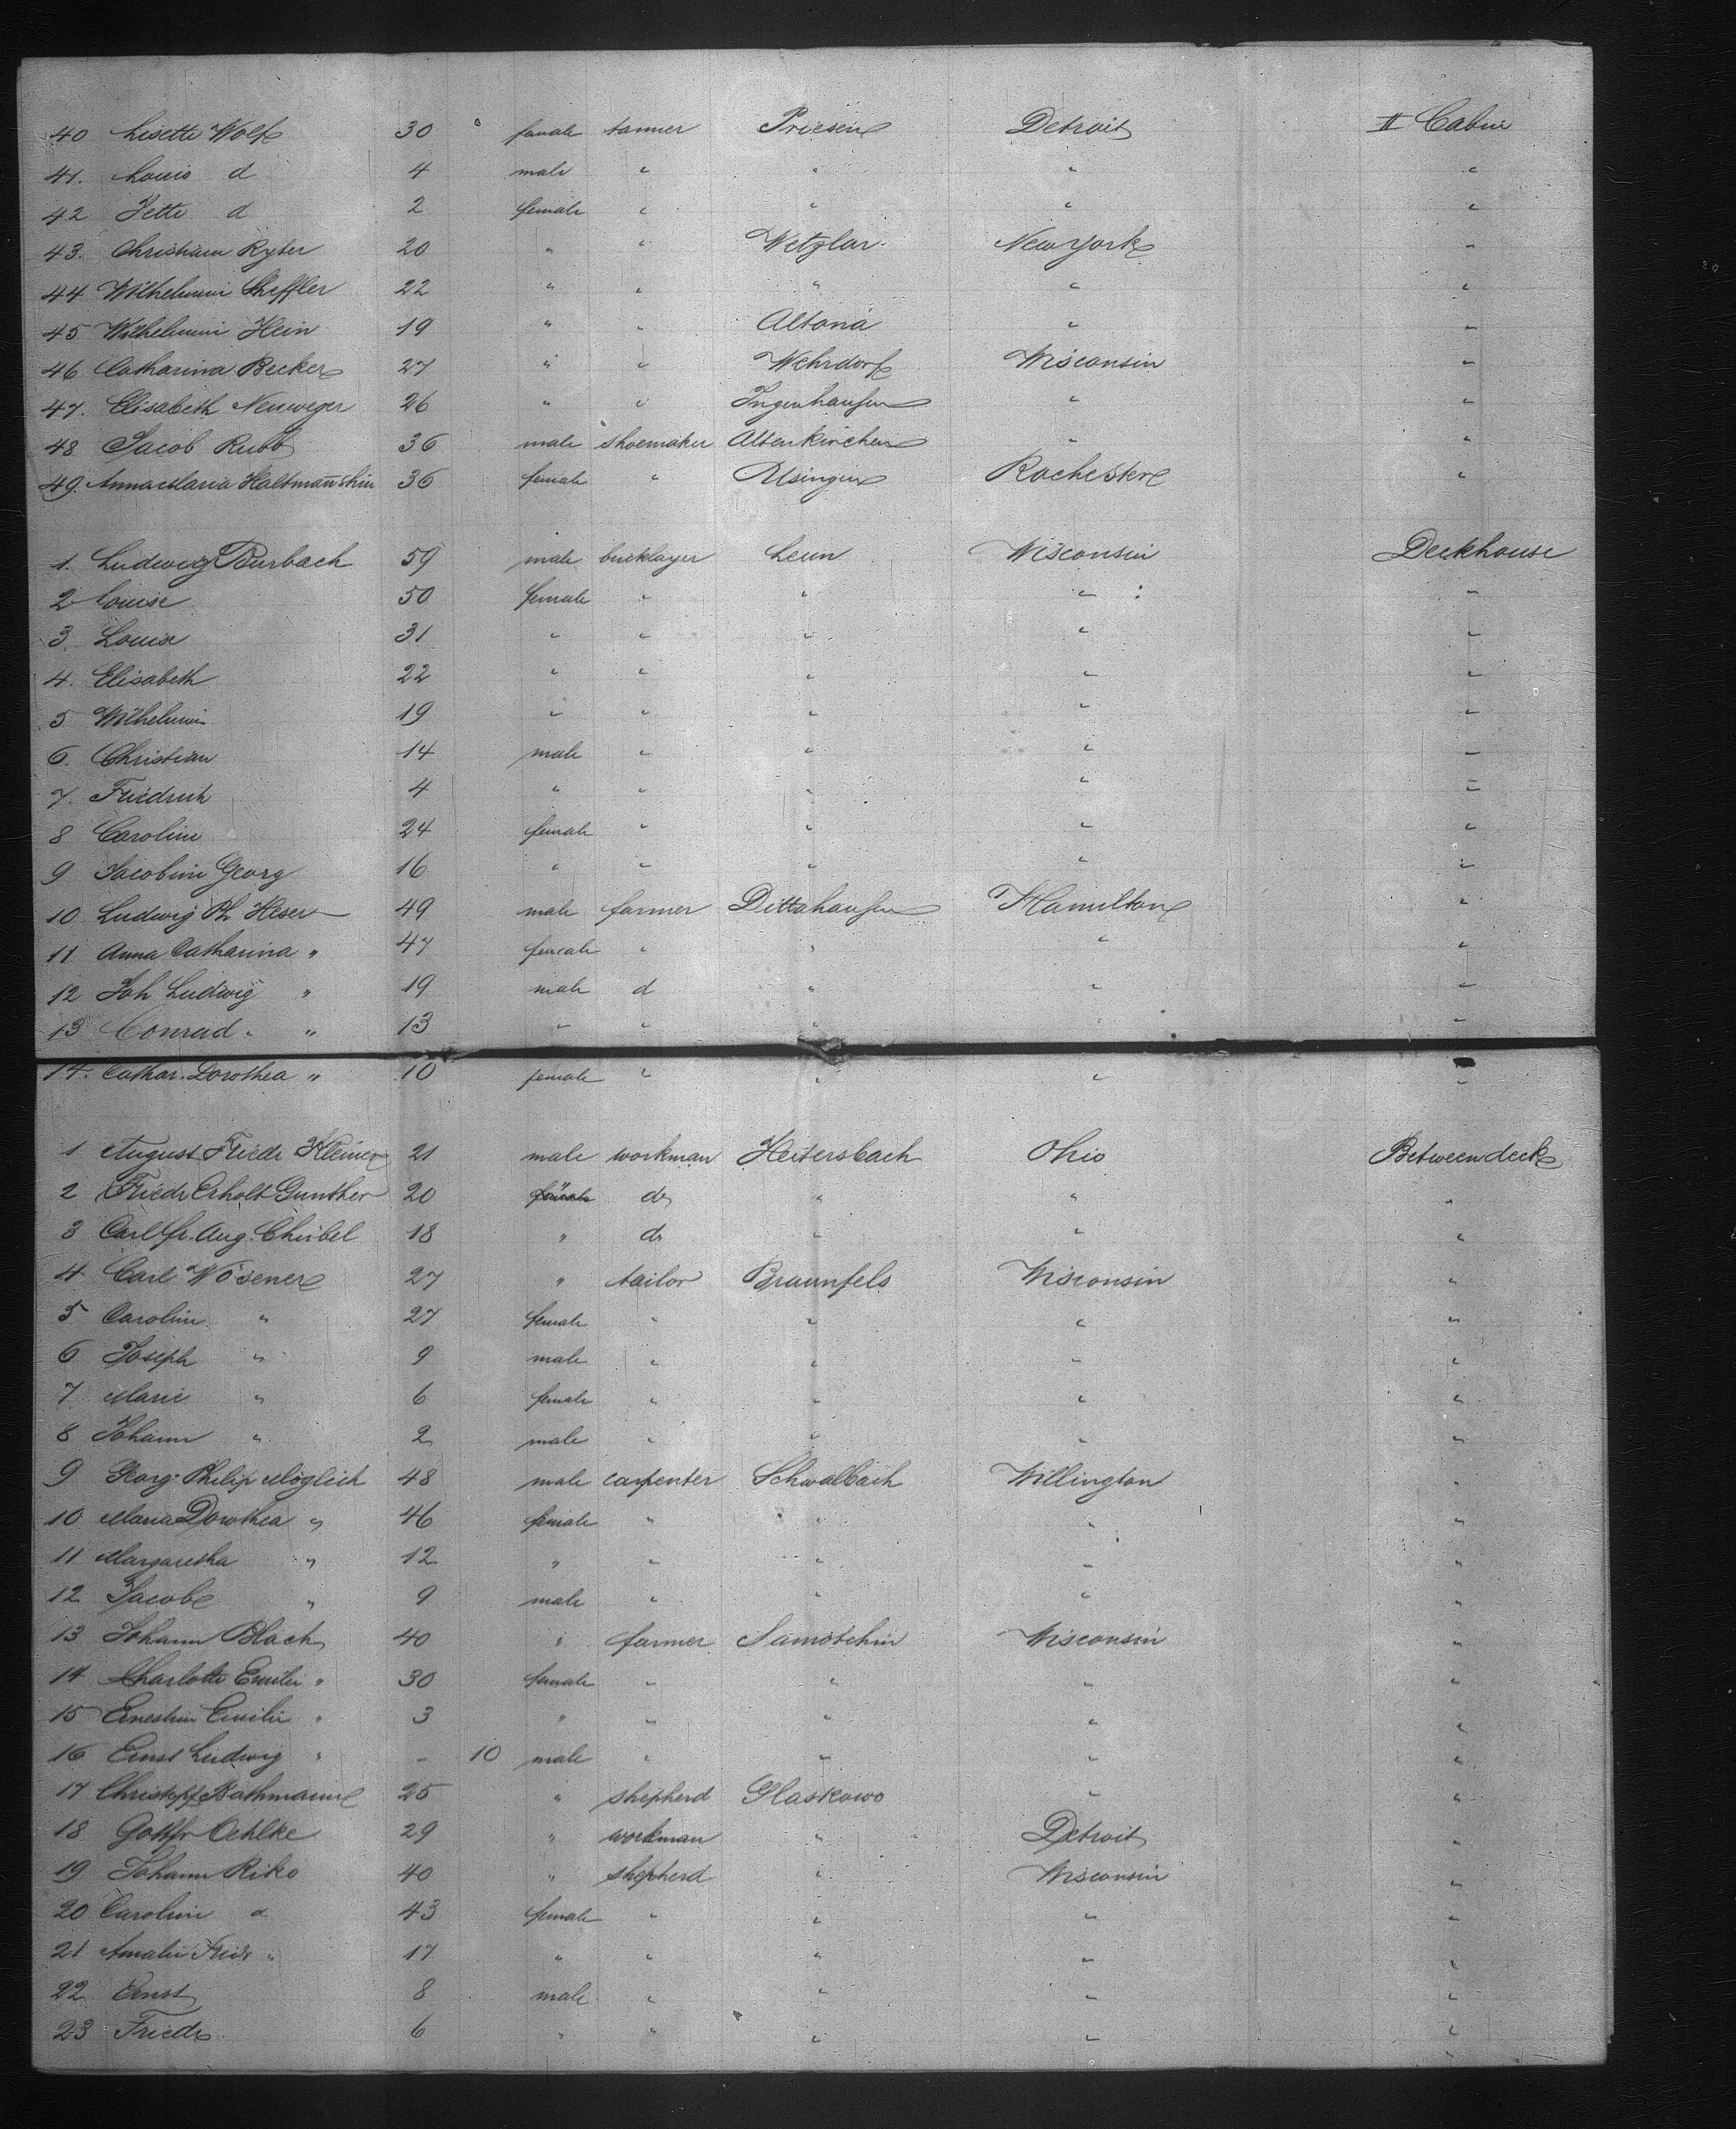 40 Lisette Wolf 30 female tanner Priesen Detroit II Cabin
41. Louis d 4 male " " " "
42 Jette d 2 female " " " "
43. Christiam Ryter 20 " " Wetzlar New York "
44 Wilhelmin Sheffler 22 " " " " "
45 Wilhelmin Hein 19 " " Altona " "
46 Catharina Becker 27 " " Wehrdorf Wisconsin "
47. Elisabeth Neuweger 26 " " Ingenhausen " "
48 Jacob Rubb 36 male shoemaker Altenkirchen " "
49. Anna Maria Haltmann 36 female " Usingen Rochester "
1. Ludwig Burbach 59 male bricklayer Leun Wisconsin Deckhouse
2 Louise 50 female " " " "
3. Louise 31 " " " " "
4. Elisabeth 22 " " " " "
5 Wilhelmin 19 " " " " "
6. Christian 14 male " " " "
7. Friedrich 4 " " " " "
8 Carolin 24 female " " " "
9 Jacobin Georg 16 " " " " "
10 Ludwig Ph Heser 49 male farmer Dittshausen Hamilton "
11 Anna Catharina " 47 female " " " "
12 Joh Ludwig " 19 male d " " "
13 Conrad " 13 " " " " "
14. Cathar. Dorothea " 10 female " " " "
1 August Friedr Kleiner 21 male workman Heitersbach Ohio Between deck
2 Friedr Erholt Gunther 20 do " " "
3 Carl fr. Aug. 18 " do " " "
4 Carl Wösener 27 " tailor Braunfels Wisconsin "
5 Carolin " 27 female " " " "
6 Joseph " 9 male " " " "
7 Marie " 6 female " " " "
8 Johann " 2 male " " " "
9 Georg Philip Möglich 48 male carpenter Schwalbach Willington "
10 Maria Dorothea " 46 female " " " "
11 Margaretha " 12 " " " " "
12 Jacob " 9 male " " " "
13 Johann Blach 40 " farmer Samotschin Wisconsin "
14 Charlotte Emilie " 30 female " " " "
15 Ernestin Emilie " 3 " " " " "
16 Ernst Ludwig " - 10 male " " " "
17 Christopf Bathmann 25 " shepherd Glaskowo " "
18 Gottfr Oehlke 29 " workman " Detroit "
19 Johann Riko 40 " shepherd " Wisconsin "
20 Carolin d 43 female " " " "
21 Amalie Fried " 17 " " " " "
22 Ernst 8 male " " " "
23 Friedr 6 " " " " "